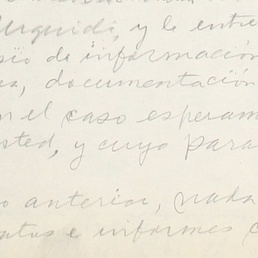 Urquidi, y le entre
sïo de informacion
es, documentacïon
n el caso esperam
sted, y cuyo para
o anterior, nada
atos e informes